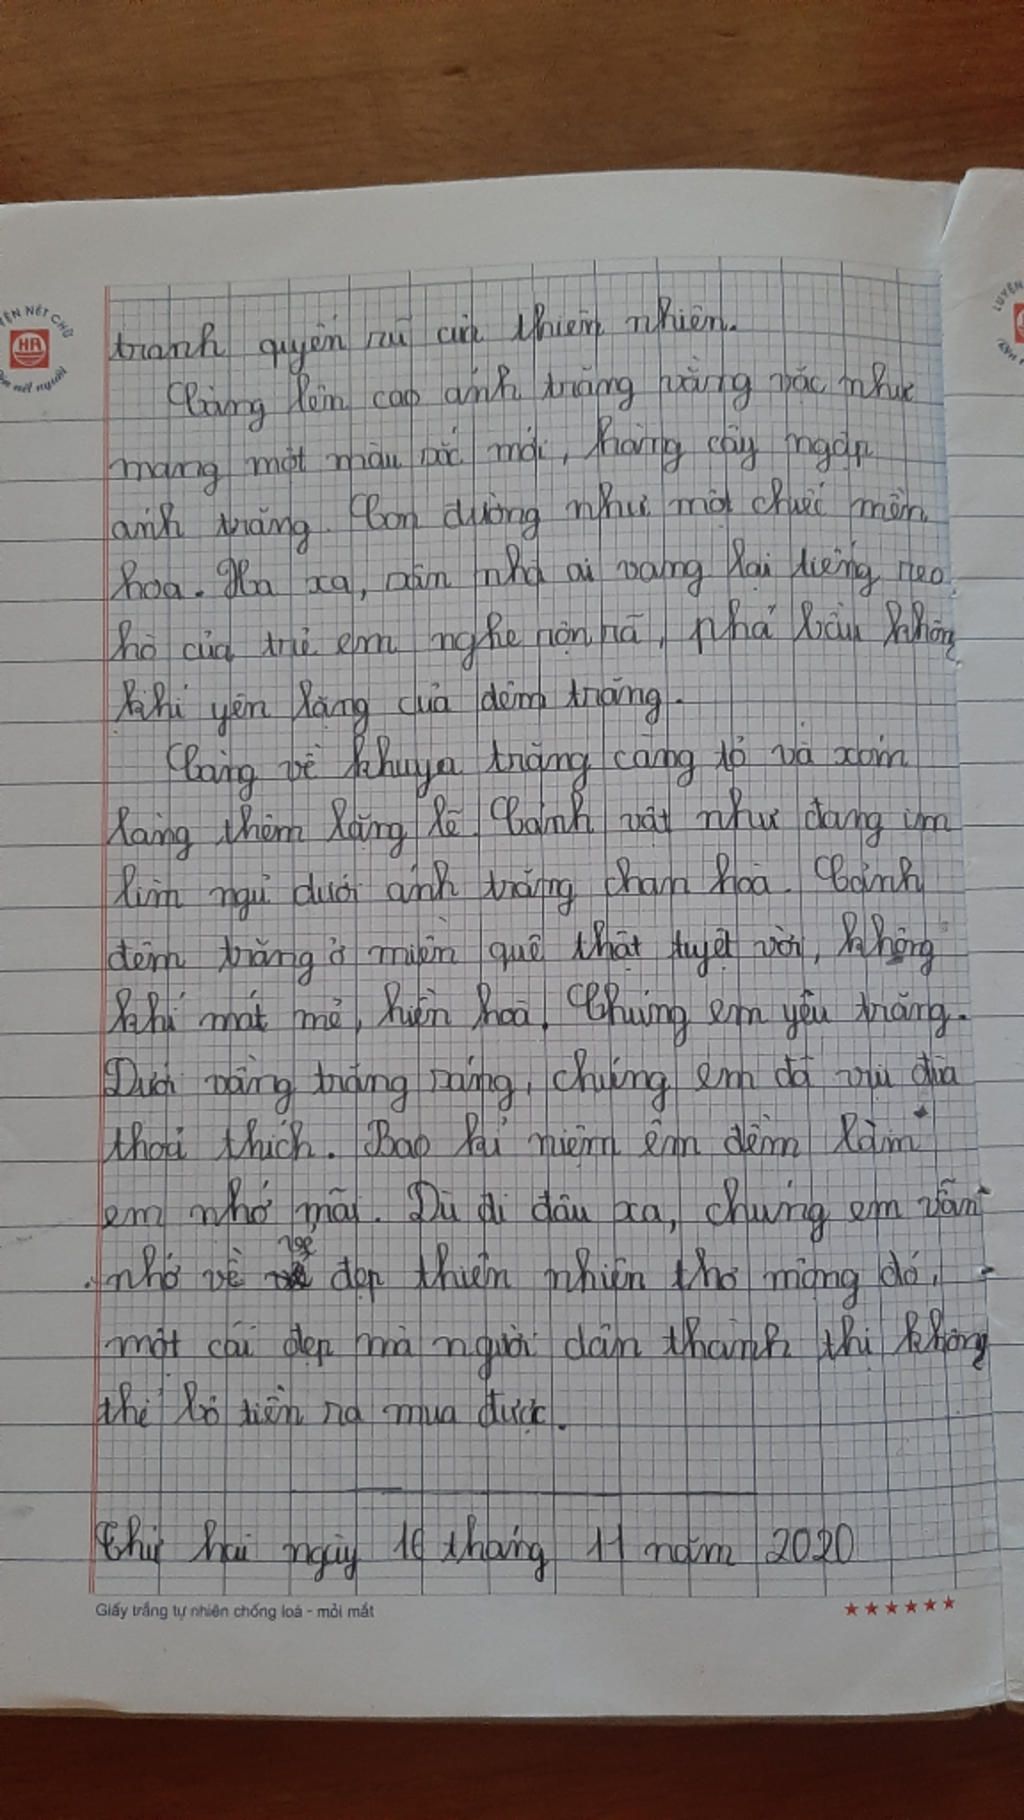 LUYỆN
ỆN NẾT CHỮ
HA
Rèn nết người
tranh quyến rũ của thiên nhiên.
Càng lên cao ánh trăng vằng vặc như
mang một màu sắc mới, hàng cây ngập
ánh trăng. Con đường như một chiếc mền
hoa. Xa xa, sân nhà ai vang lại tiếng reo
hò của trẻ em nghe rộn rã, phá bầu không
khí yên lặng của đêm trăng.
Càng về khuya trăng càng tỏ và xóm
làng thêm lặng lẽ. Cảnh vật như đang im
lìm ngủ dưới ánh trăng chan hoà. Cảnh
đêm trăng ở miền quê thật tuyệt vời, không
khí mát mẻ, hiền hoà. Chúng em yêu trăng.
Dưới vầng trăng sáng, chúng em đã vui đùa
thoả thích. Bao kỉ niệm êm đềm làm
em nhớ mãi. Dù đi đâu xa, chúng em vẫn
nhớ về vẻ đẹp thiên nhiên thơ mộng đó,
một cái đẹp mà người dân thành thị không
thể bỏ tiền ra mua được.
Thứ hai ngày 16 tháng 11 năm 2020
Giấy trắng tự nhiên chống loá - mỏi mắt